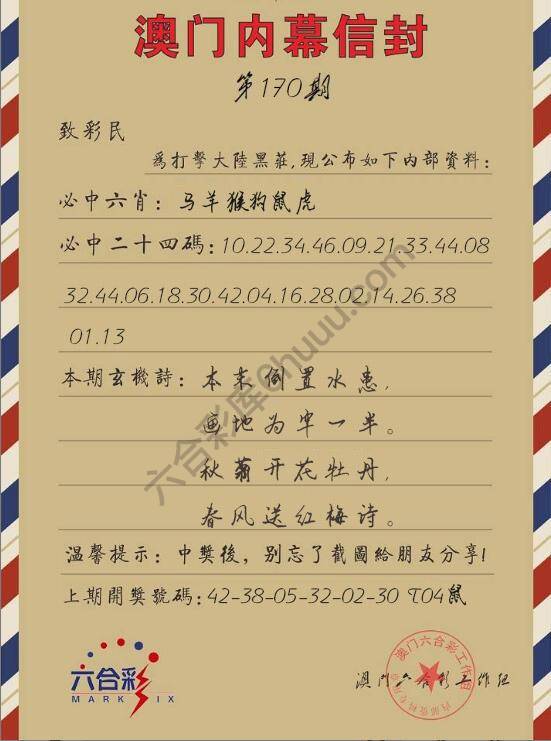 澳门内幕信封
第170期
致彩民
為打擊大陸黑莊,現公布如下内部資料:
必中六肖: 马羊猴狗鼠虎
必中二十四碼: 10.22.34.46.09.21.33.44.08
32.44.06.18.30.42.04.16.28.02.14.26.38
01.13
本期玄機詩: 本末倒置水患,
画地为牢一半。
秋菊开花牡丹,
春风送红梅诗。
温馨提示: 中獎後,别忘了截圖給朋友分享!
上期開獎號碼: 42-38-05-32-02-30 T04鼠
六合彩
MARK SIX
澳门六合彩工作组
澳门六合彩工作组
六合彩库ehuuu.com